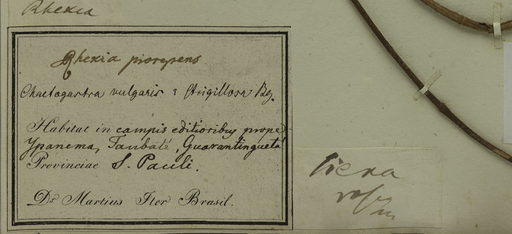 Rhexia
Rhexia
Chaetogastra vulgaris & strigillosa
Habitat in campis editioribus prope
Ypanema, Taubaté, Guarantinguetá
Provinciae S. Pauli.
Dr Martius Iter Brasil.